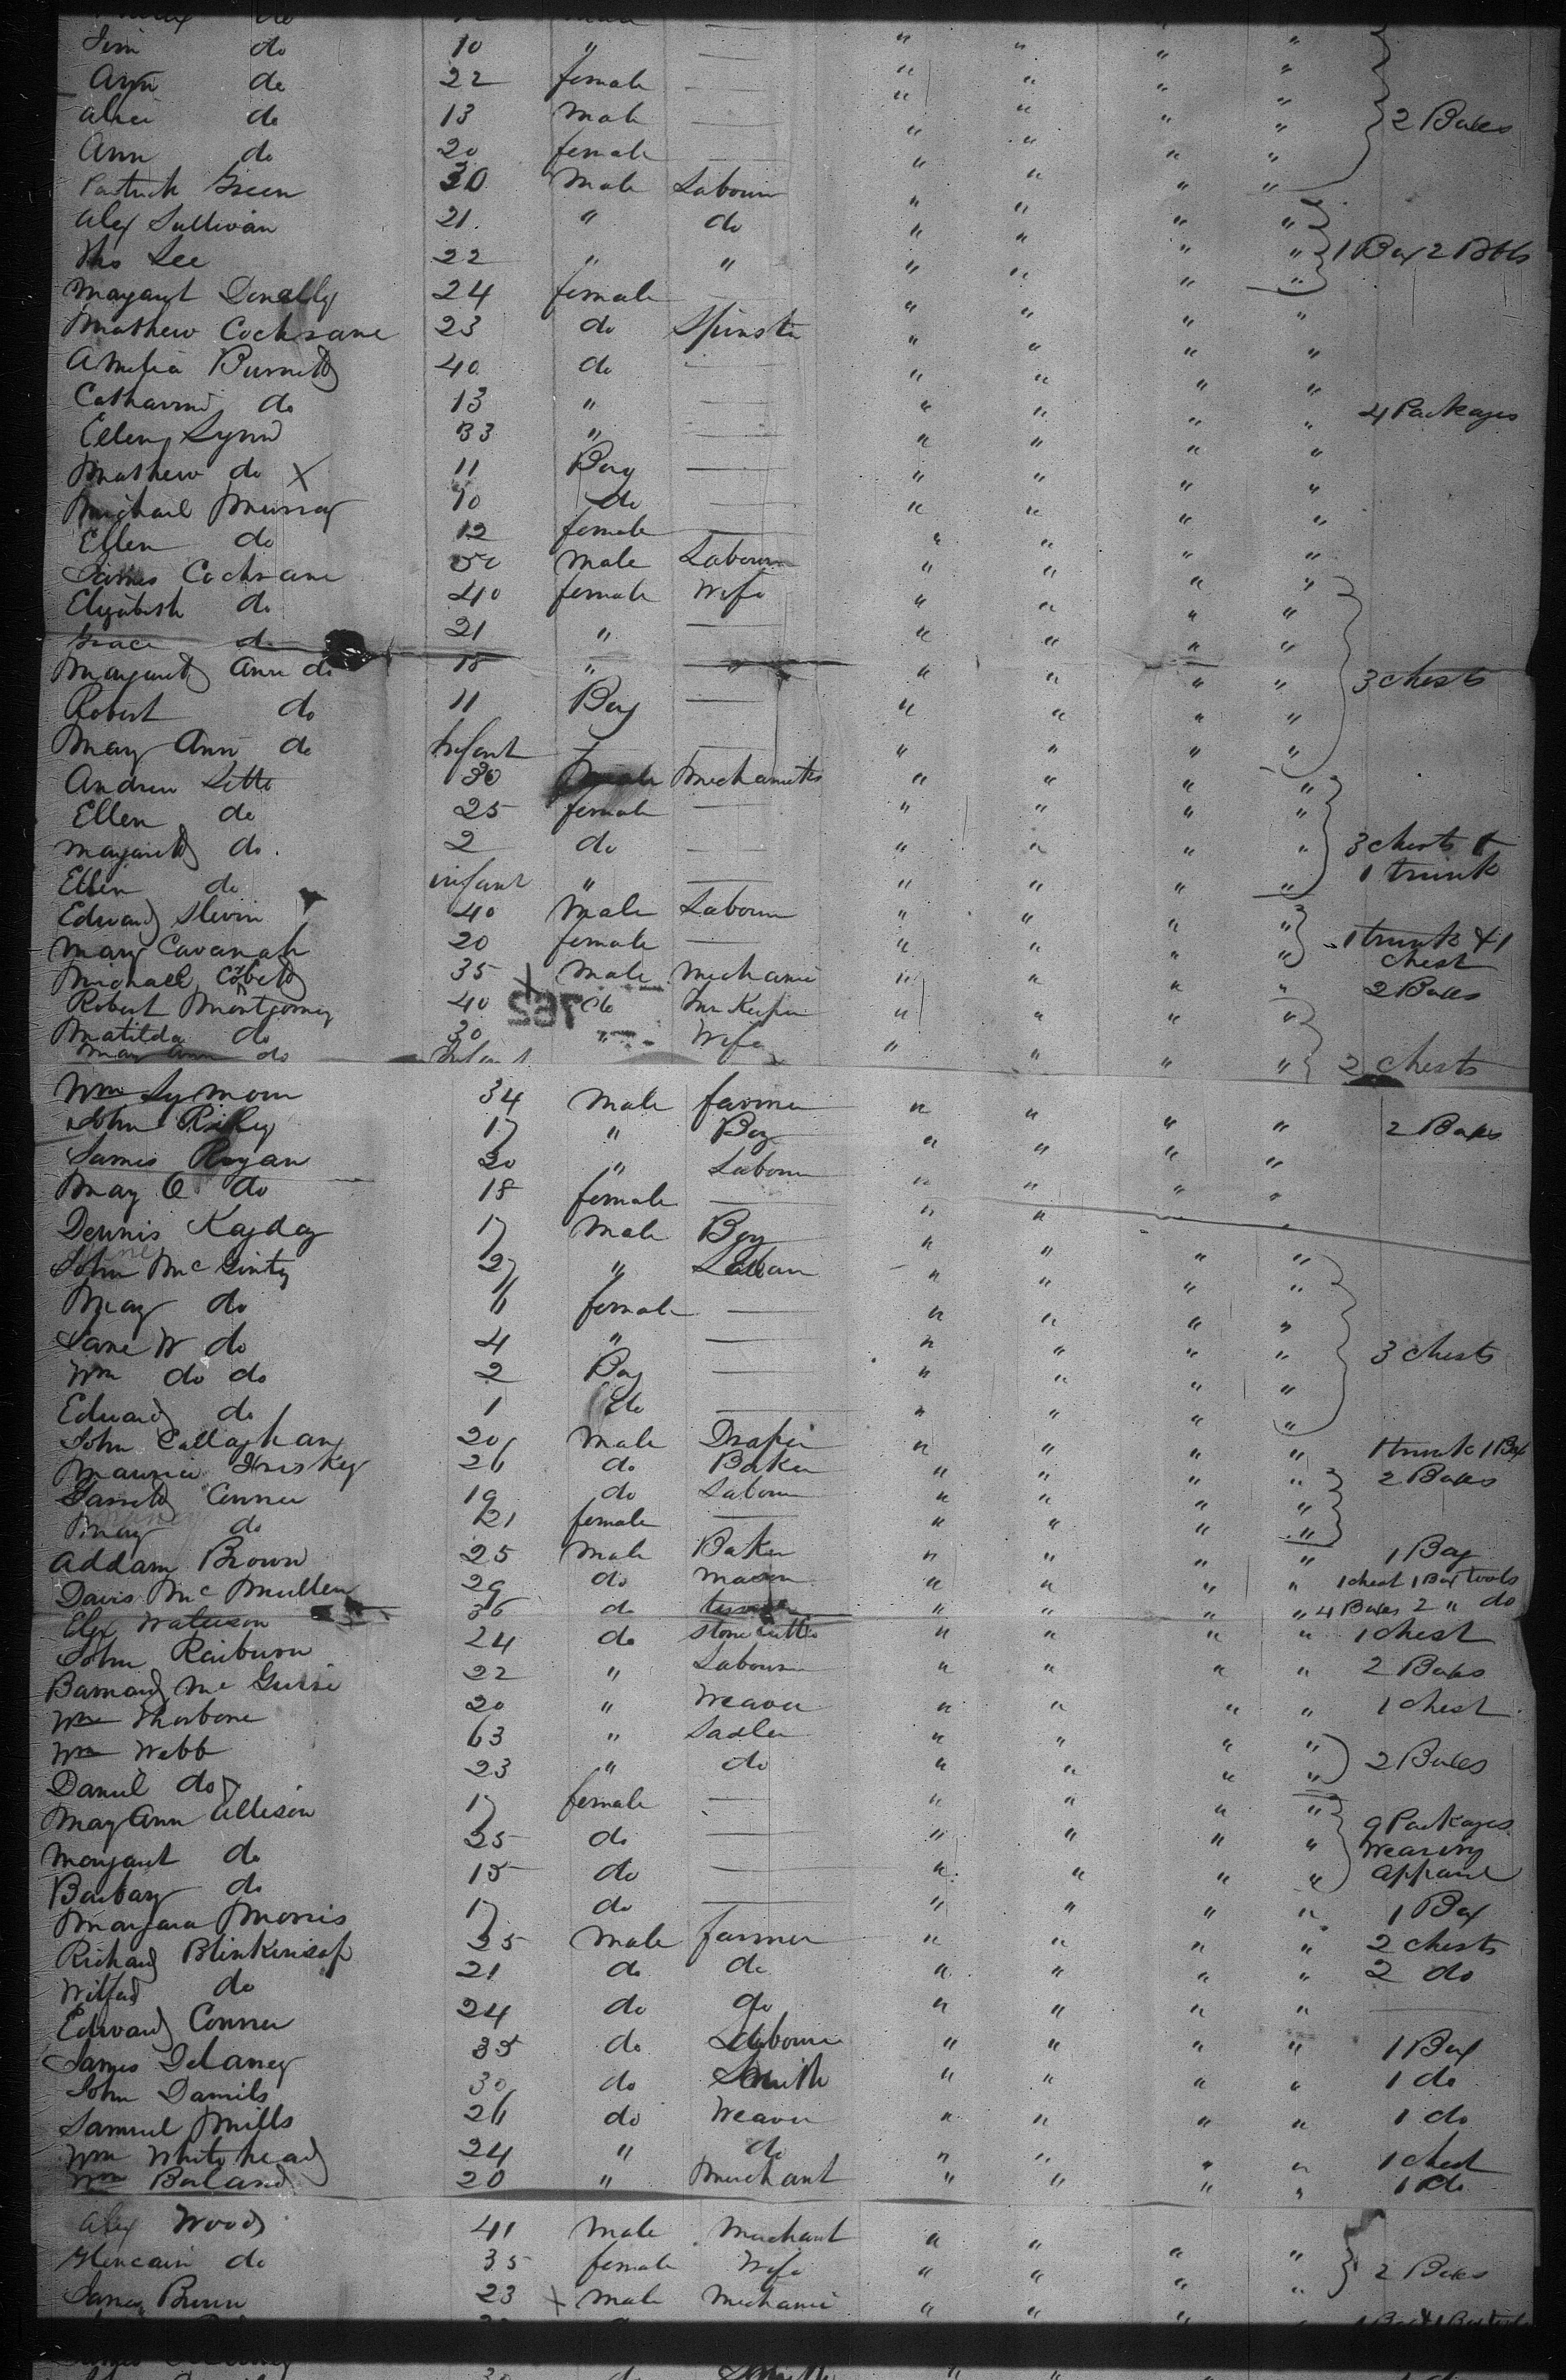 do 10 " — " " " "
Ann do 22 female — " " " "
do 13 Male — " " " "
Ann do 20 female — " " " " 2 Boxes
Patrick Green 30 Male Labourer " " " "
Alex Sullivan 21 " do " " " "
Tho Lee 22 " " " " " " 1 Box 2 Bdls
Margaret Donelly 24 female " " " "
Mathew Cochrane 23 do Spinster " " " "
Amelia Burnett 40 do — " " " "
Catharine do 13 " — " " " " 4 Packages
Ellen Lynn 33 " " " " "
Mathew do X 11 Boy — " " " "
Michael Murray 10 do — " " " "
Ellen do 12 female — " " " "
James Cochrane 50 Male Labourer " " " "
Elizabeth do 40 female Wife " " " "
Grace do 21 " — " " " "
Margaret Ann do 18 " " " " " " 3 chests
Robert do 11 Boy — " " " "
Mary Ann do Infant — " " " "
Andrew 30 Male " " " "
Ellen do 25 female — " " " "
Margarett do 2 do — " " " " 3 chests &
Ellen do infant " — " " " " 1 trunk
Edward Slevin 40 Male Labourer " " " "
Mary Cavanah 20 female — " " " " 1 trunk & 1 chest
Michael Corbett 35 Male Mechanic " " " " 2 Boxes
Robert Montgomery 40 do Inn Keeper " " " "
Matilda do 30 " Wife " " " "
Mary Ann do Infant " " 2 chests
Wm 34 Male farmer " " " " 2 Boxes
John Riley 17 " Boy " " " "
James Rogan 20 " Labourer " " " "
Mary do 18 female — " " " "
Dennis 17 Male Boy " " " "
John McGinty 27 " " " " "
Mary do female — " " " "
Jane W do 4 " — " " " " 3 chests
Wm do do 2 Boy — " " " "
Edward do 1 do — " " " "
John Callaghan 20 Male Draper " " " " 1 trunk 1 Box
Maurice 26 do Baker " " " " 2 Boxes
Garrett Conner 19 do Labourer " " " "
Mary do 21 female — " " " "
Addam Brown 25 Male Baker " " " " 1 Bag
Davis McMullen 29 do mason " " " " 1 chest 1 Box tools
Elex Waterson 36 do " " " " 4 Boxes 2 " do
John Raiburn 24 do Stone cutter " " " " 1 chest
Barnard Mc 22 " Labourer " " " " 2 Boxes
Wm Thorbone 20 " Weaver " " " " 1 chest
Wm Webb 63 " Sadler " " " "
Daniel do 23 " do " " " " 2 Boxes
Mary Ann Allison 17 female — " " " " 9 Packages
Margaret do 25 do — " " " " Wearing
Barbary do 15 do " " " " apparel
Morris 17 do — " " " " 1 Box
Richard Blinkensop 25 Male farmer " " " " 2 chests
Wilfred do 21 do do " " " " 2 do
Edward Conner 24 do do " " " " —
James Delaney 35 do Labourer " " " " 1 Box
John Daniels 30 do Smith " " " " 1 do
Samuel Mills 26 do Weaver " " " " 1 do
Wm Whitehead 24 " do " " " " 1 chest
Wm Boland 20 " Merchant " " " " 1 do
Alex Wood 41 Male Merchant " " " "
Glencairn do 35 female Wife " " " " 2 Boxes
James Brown 23 Male Mechanic " " " "